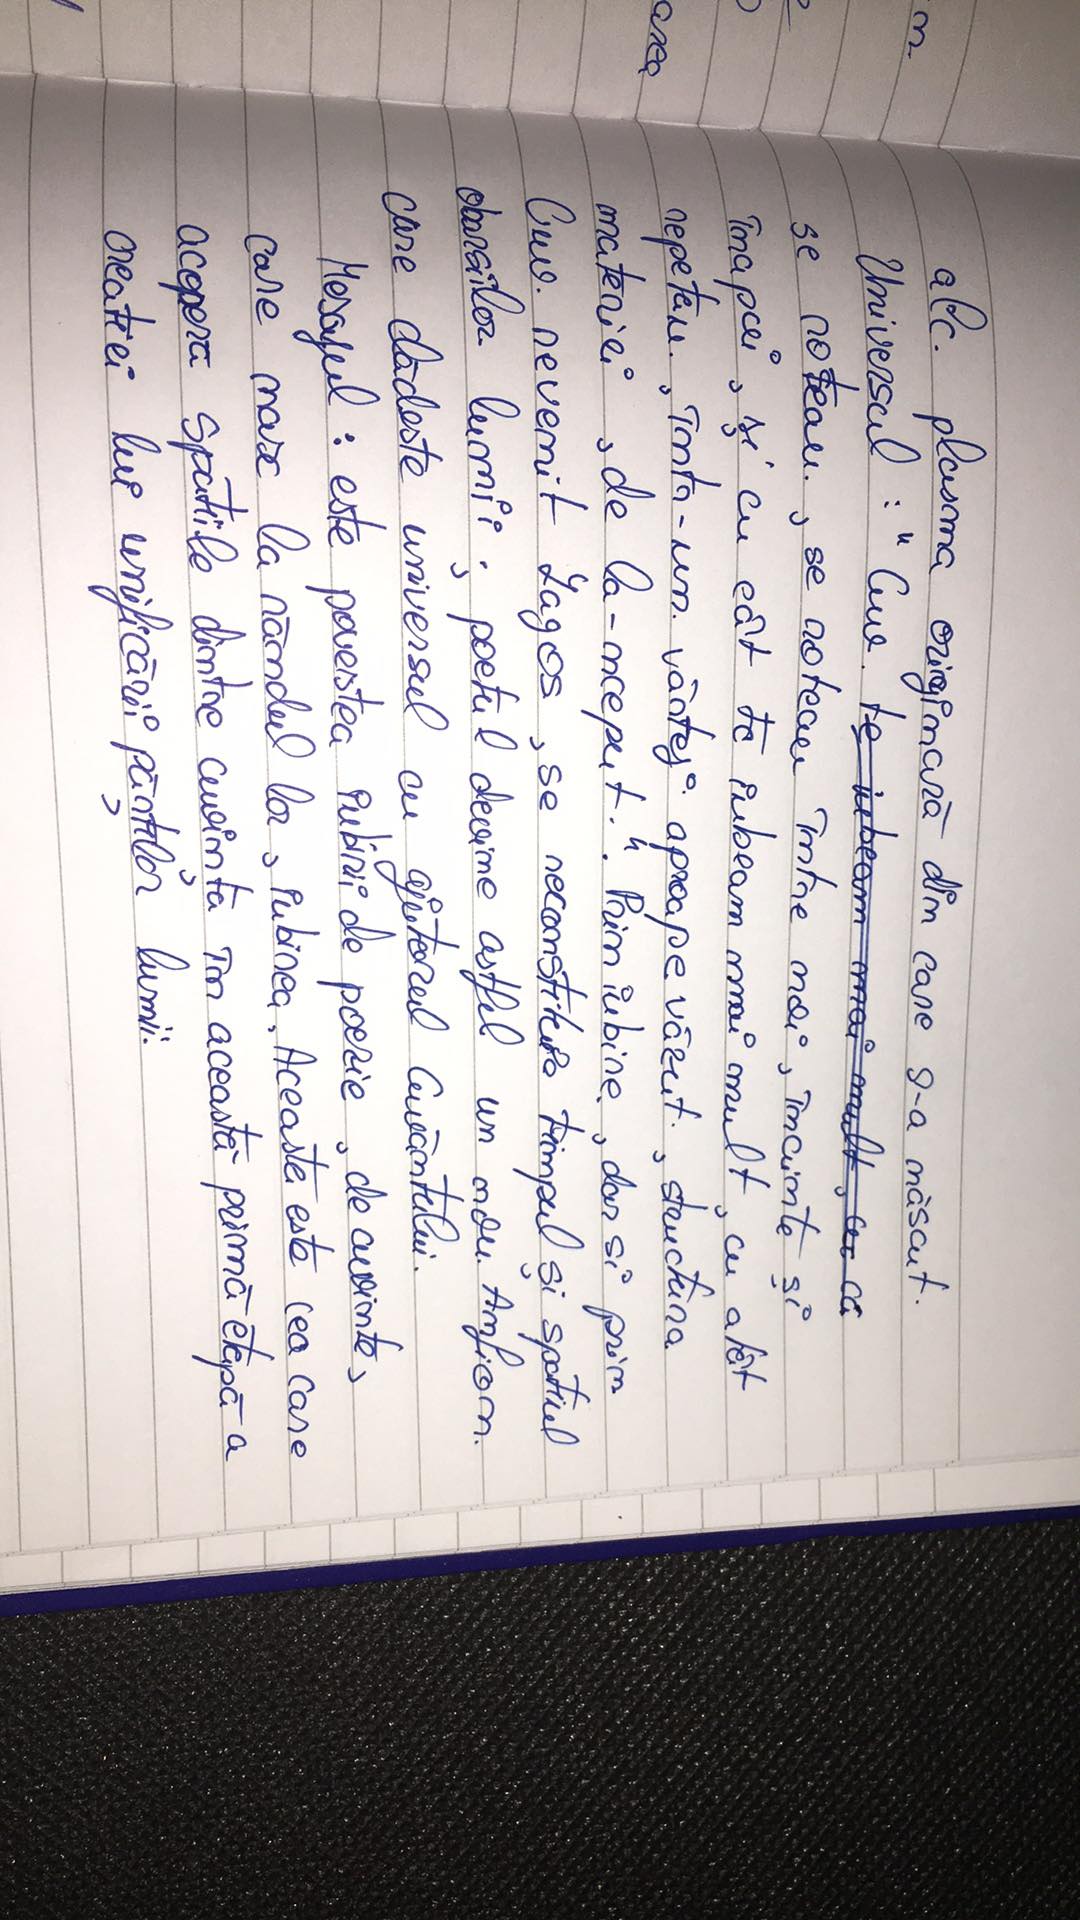 m
area
alc. plasma originară din care s-a născut.
Universul : " Cuv. te iubeam mai mult, cu ca
se roteau. , se roteau între noi, înainte și
înapoi, și cu cât te iubeam mai mult, cu atât
repetau. , într-un. vârtej aproape văzut. , structura
materiei , de la-nceput.". Prin iubire. , dar si prin
Cuv. revenit Logos , se reconstituie timpul și spatiul
obarsiilor lumii ; poetul devine astfel un nou. Amfion.
care clădeste universul cu ajutorul Cuvântului.
Mesajul : este povestea iubirii de poezie , de cuvinte,
care nasc la rândul lor, iubirea. Aceasta este cea care
acopera spatiile dintre cuvinte în această primă etapă a
creatiei lui unificării părților lumii.